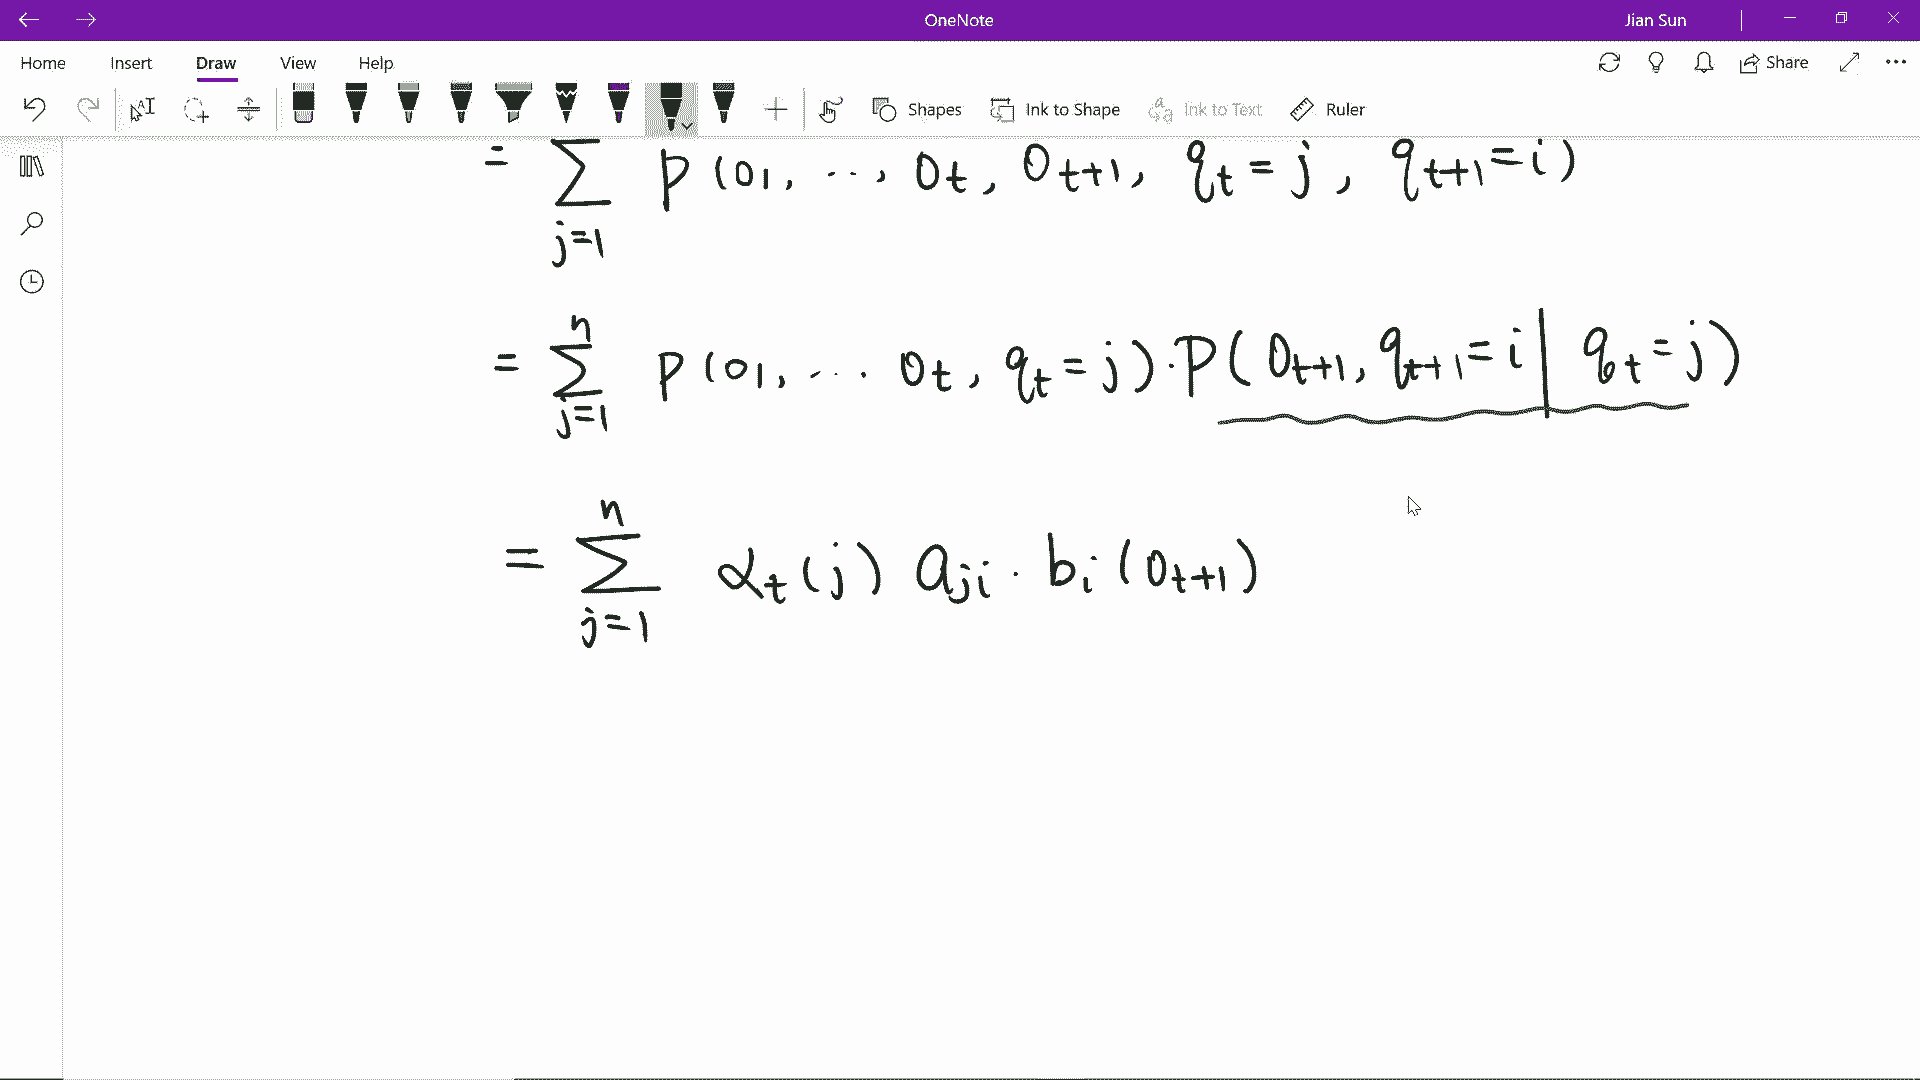 OneNote
Jian Sun
Home Insert Draw View Help
Share
Shapes Ink to Shape Ink to Text Ruler
= ∑ P(O1, ..., Ot, Ot+1, qt = j, qt+1 = i)
j=1
n
= ∑ P(O1, .... Ot, qt = j) · P(Ot+1, qt+1 = i | qt = j)
j=1
n
= ∑ αt(j) aji · bi(Ot+1)
j=1